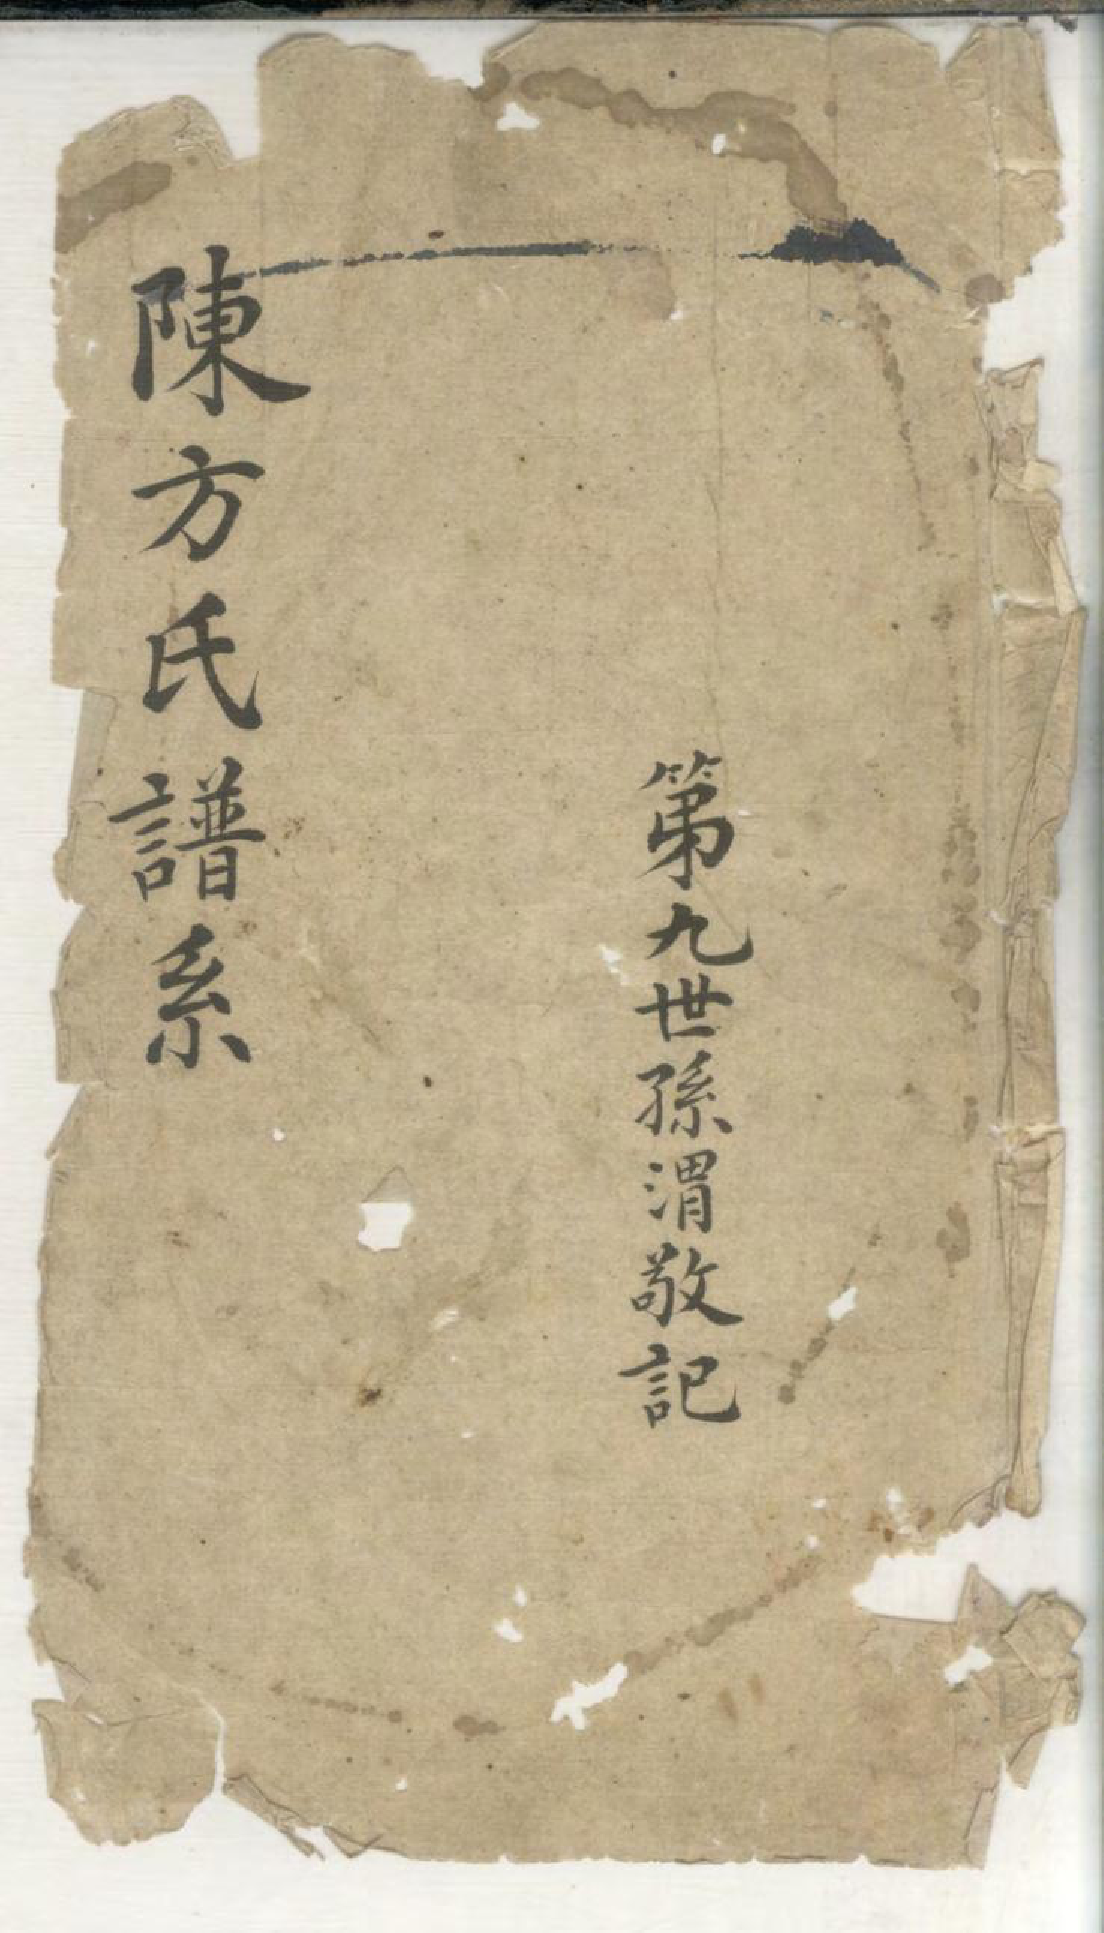 第九世孫渭敬記
陳方氏譜系